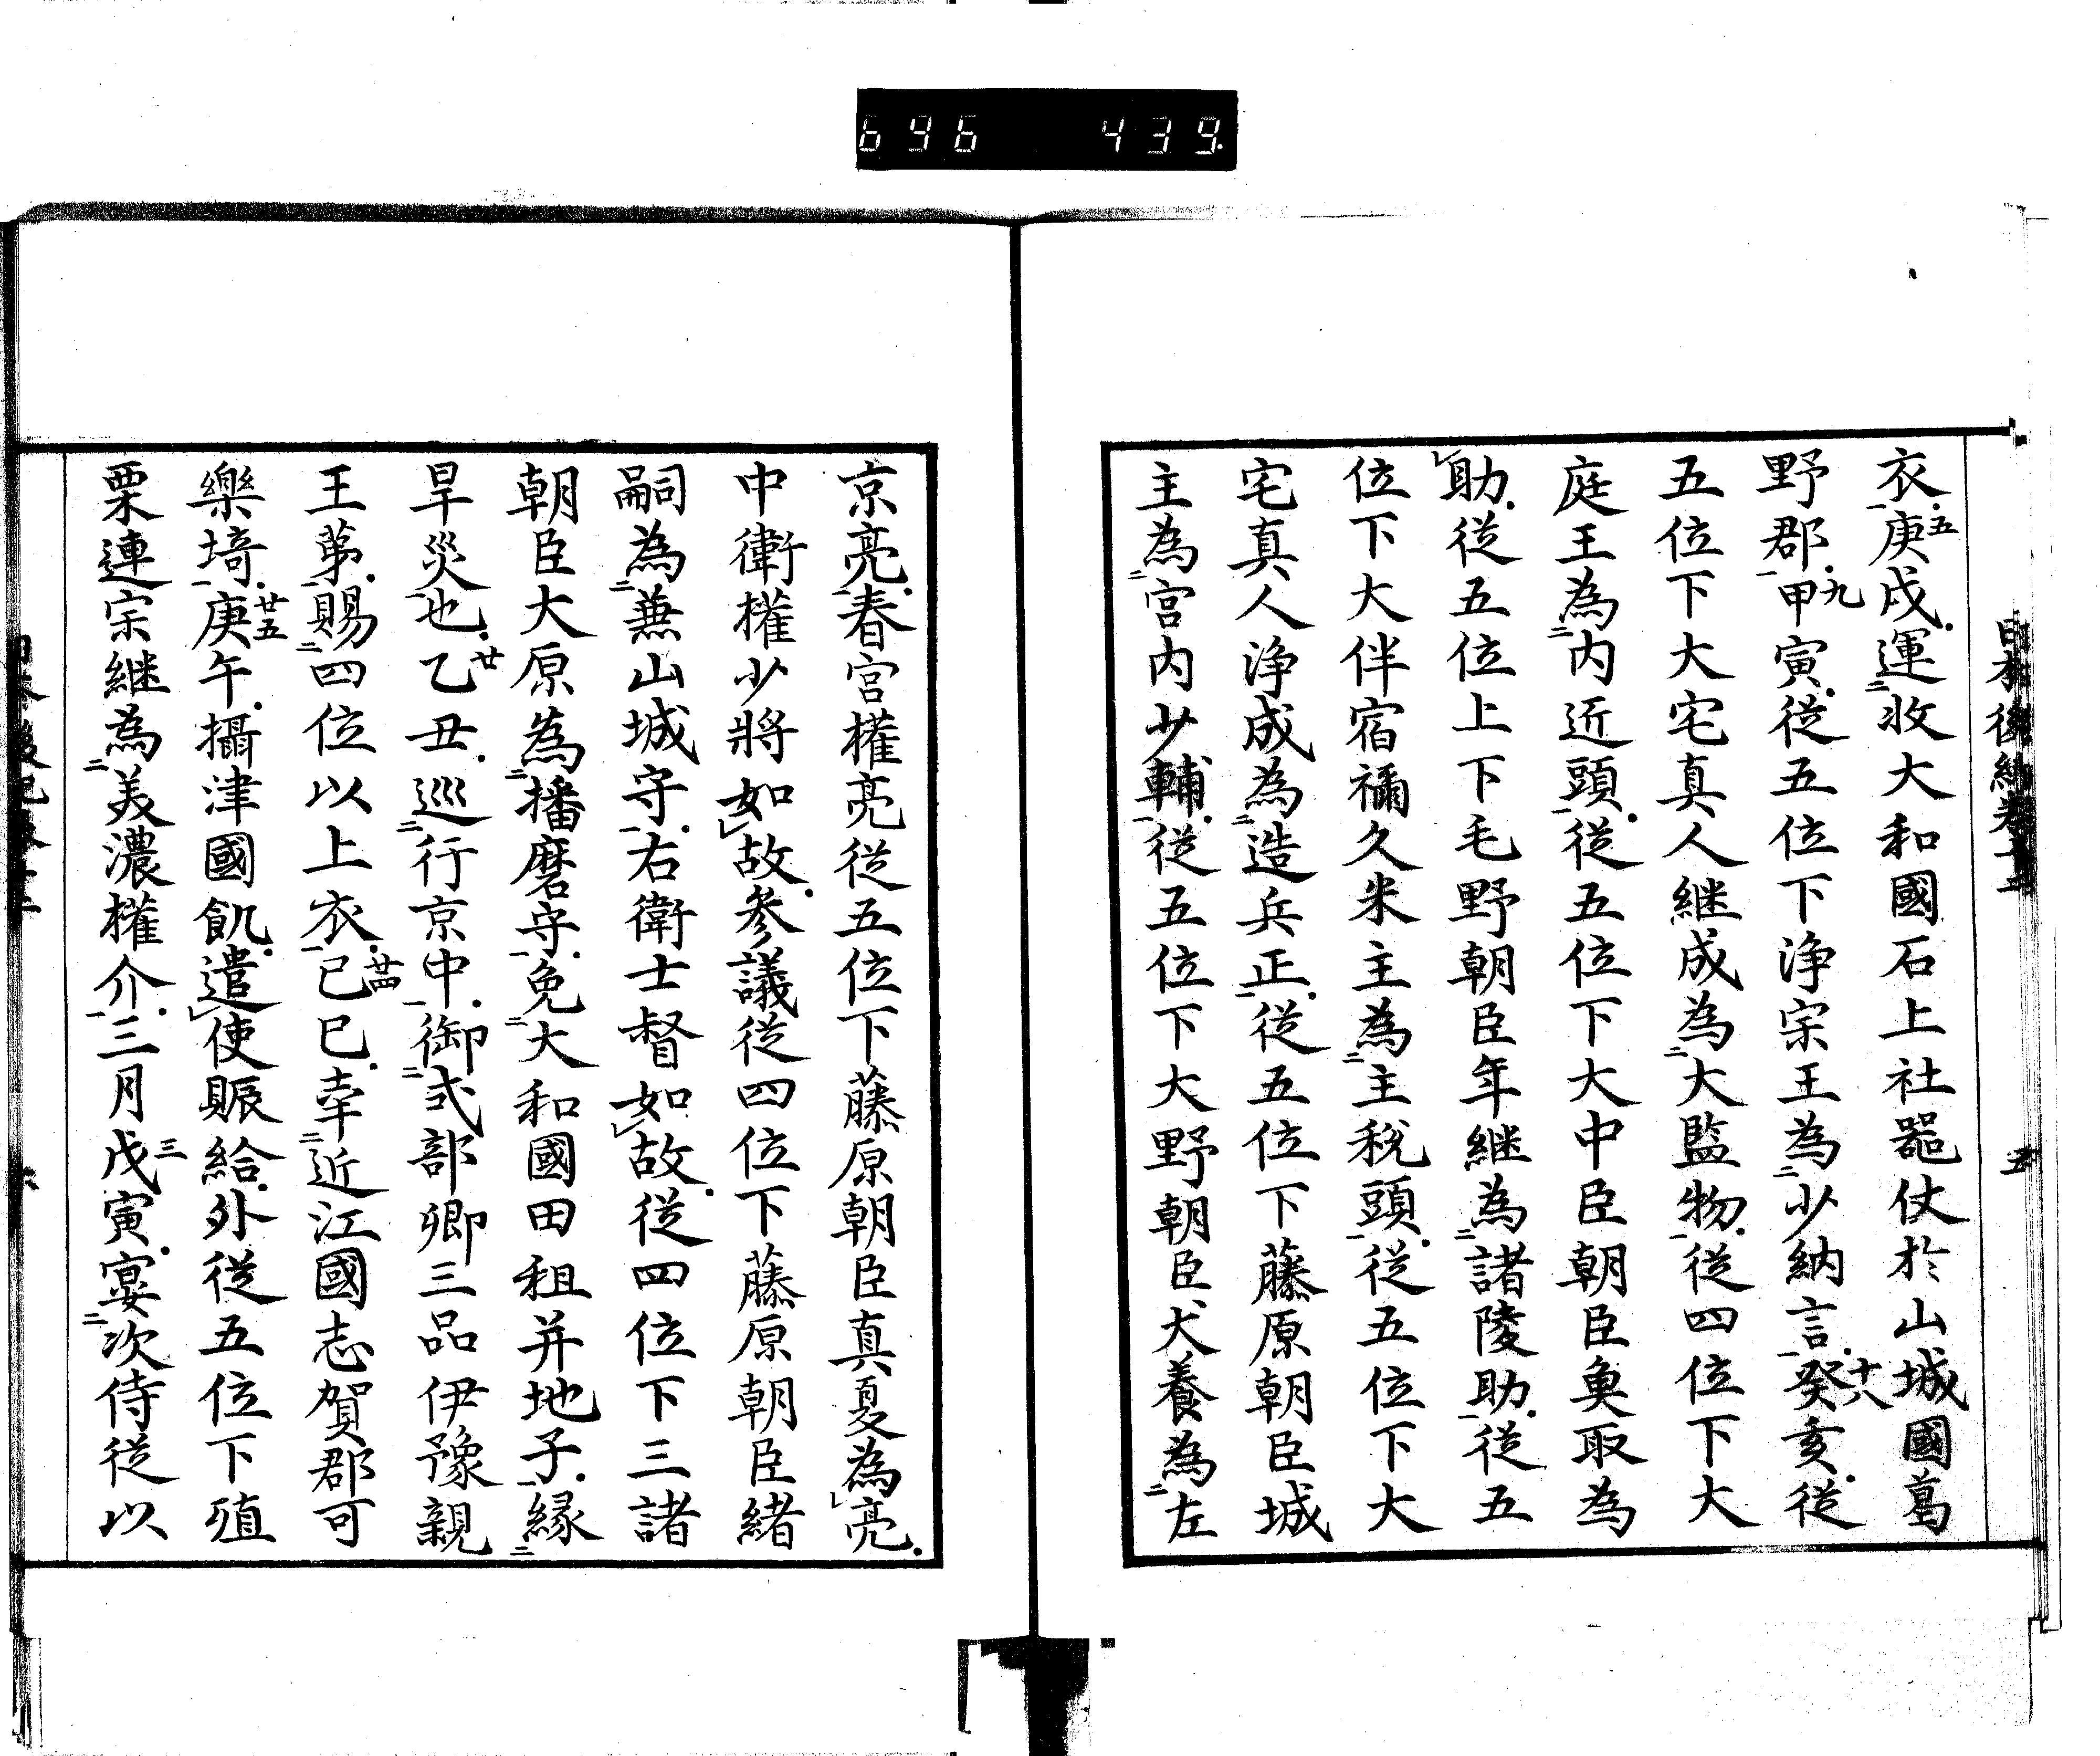 696 439
日本後紀巻十二 五
衣庚戌運收大和國石上社噐仗於山城國葛
野郡甲寅從五位下浄宗王為少納言癸亥從
五位下大宅真人継成為大監物從四位下大
庭王為内匠頭從五位下大中臣朝臣魚取為
助從五位上下毛野朝臣年継為諸陵助從五
位下大伴宿禰久米主為主税頭從五位下大
宅真人浄成為造兵正從五位下藤原朝臣城
主為宮内少輔從五位下大野朝臣犬養為左
京亮春宮權亮從五位下藤原朝臣真夏為亮
中衛權少將如故參議從四位下藤原朝臣緒
嗣為兼山城守右衛士督如故從四位下三諸
朝臣大原為播磨守免大和國田租并地子縁
旱災也乙丑巡行京中御式部卿三品伊豫親
王第賜四位以上衣己巳幸近江國志賀郡可
樂埼庚午攝津國飢遣使賑給外從五位下殖
栗連宗継為美濃權介三月戊寅宴次侍從以